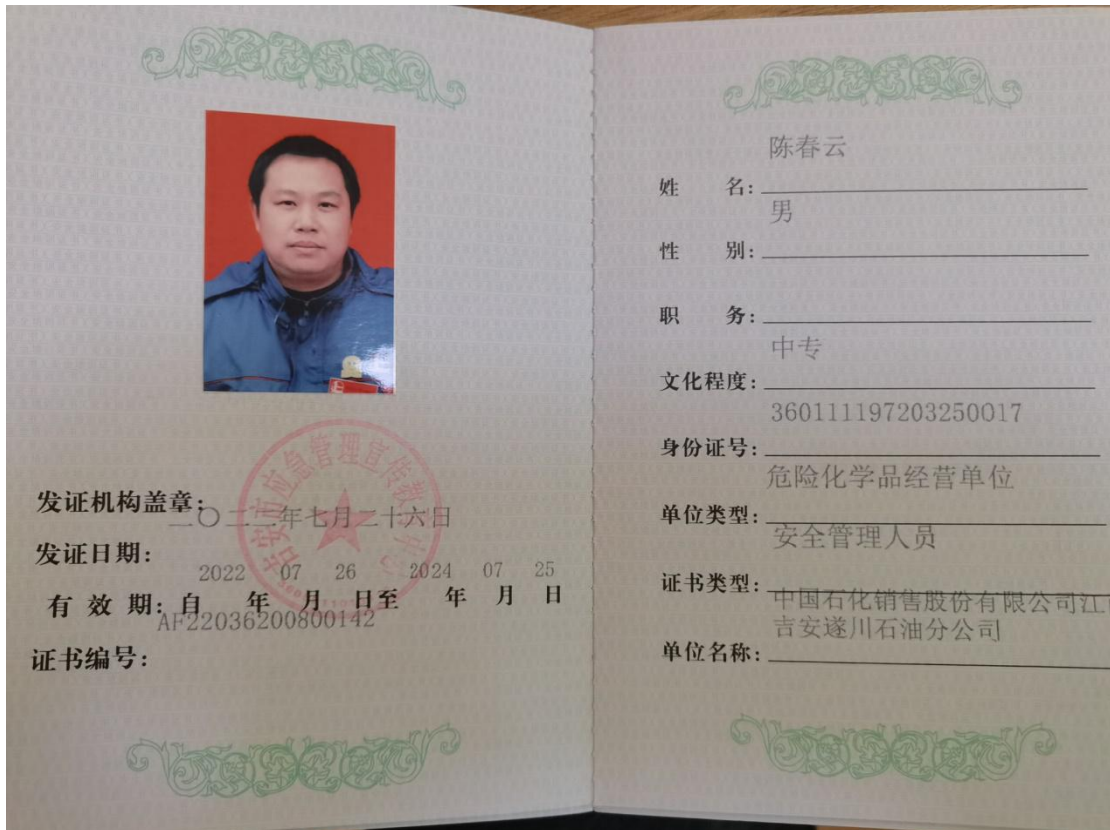 发证机构盖章:
二〇二二年七月二十六日
发证日期:
2022 07 26 2024 07 25
有 效 期: 自 年 月 日至 年 月 日
AF22036200800142
证书编号:
吉安市应急管理宣传教育中心
陈春云
姓 名:
男
性 别:
职 务:
中专
文化程度:
360111197203250017
身份证号:
危险化学品经营单位
单位类型:
安全管理人员
证书类型:
中国石化销售股份有限公司江
吉安遂川石油分公司
单位名称: